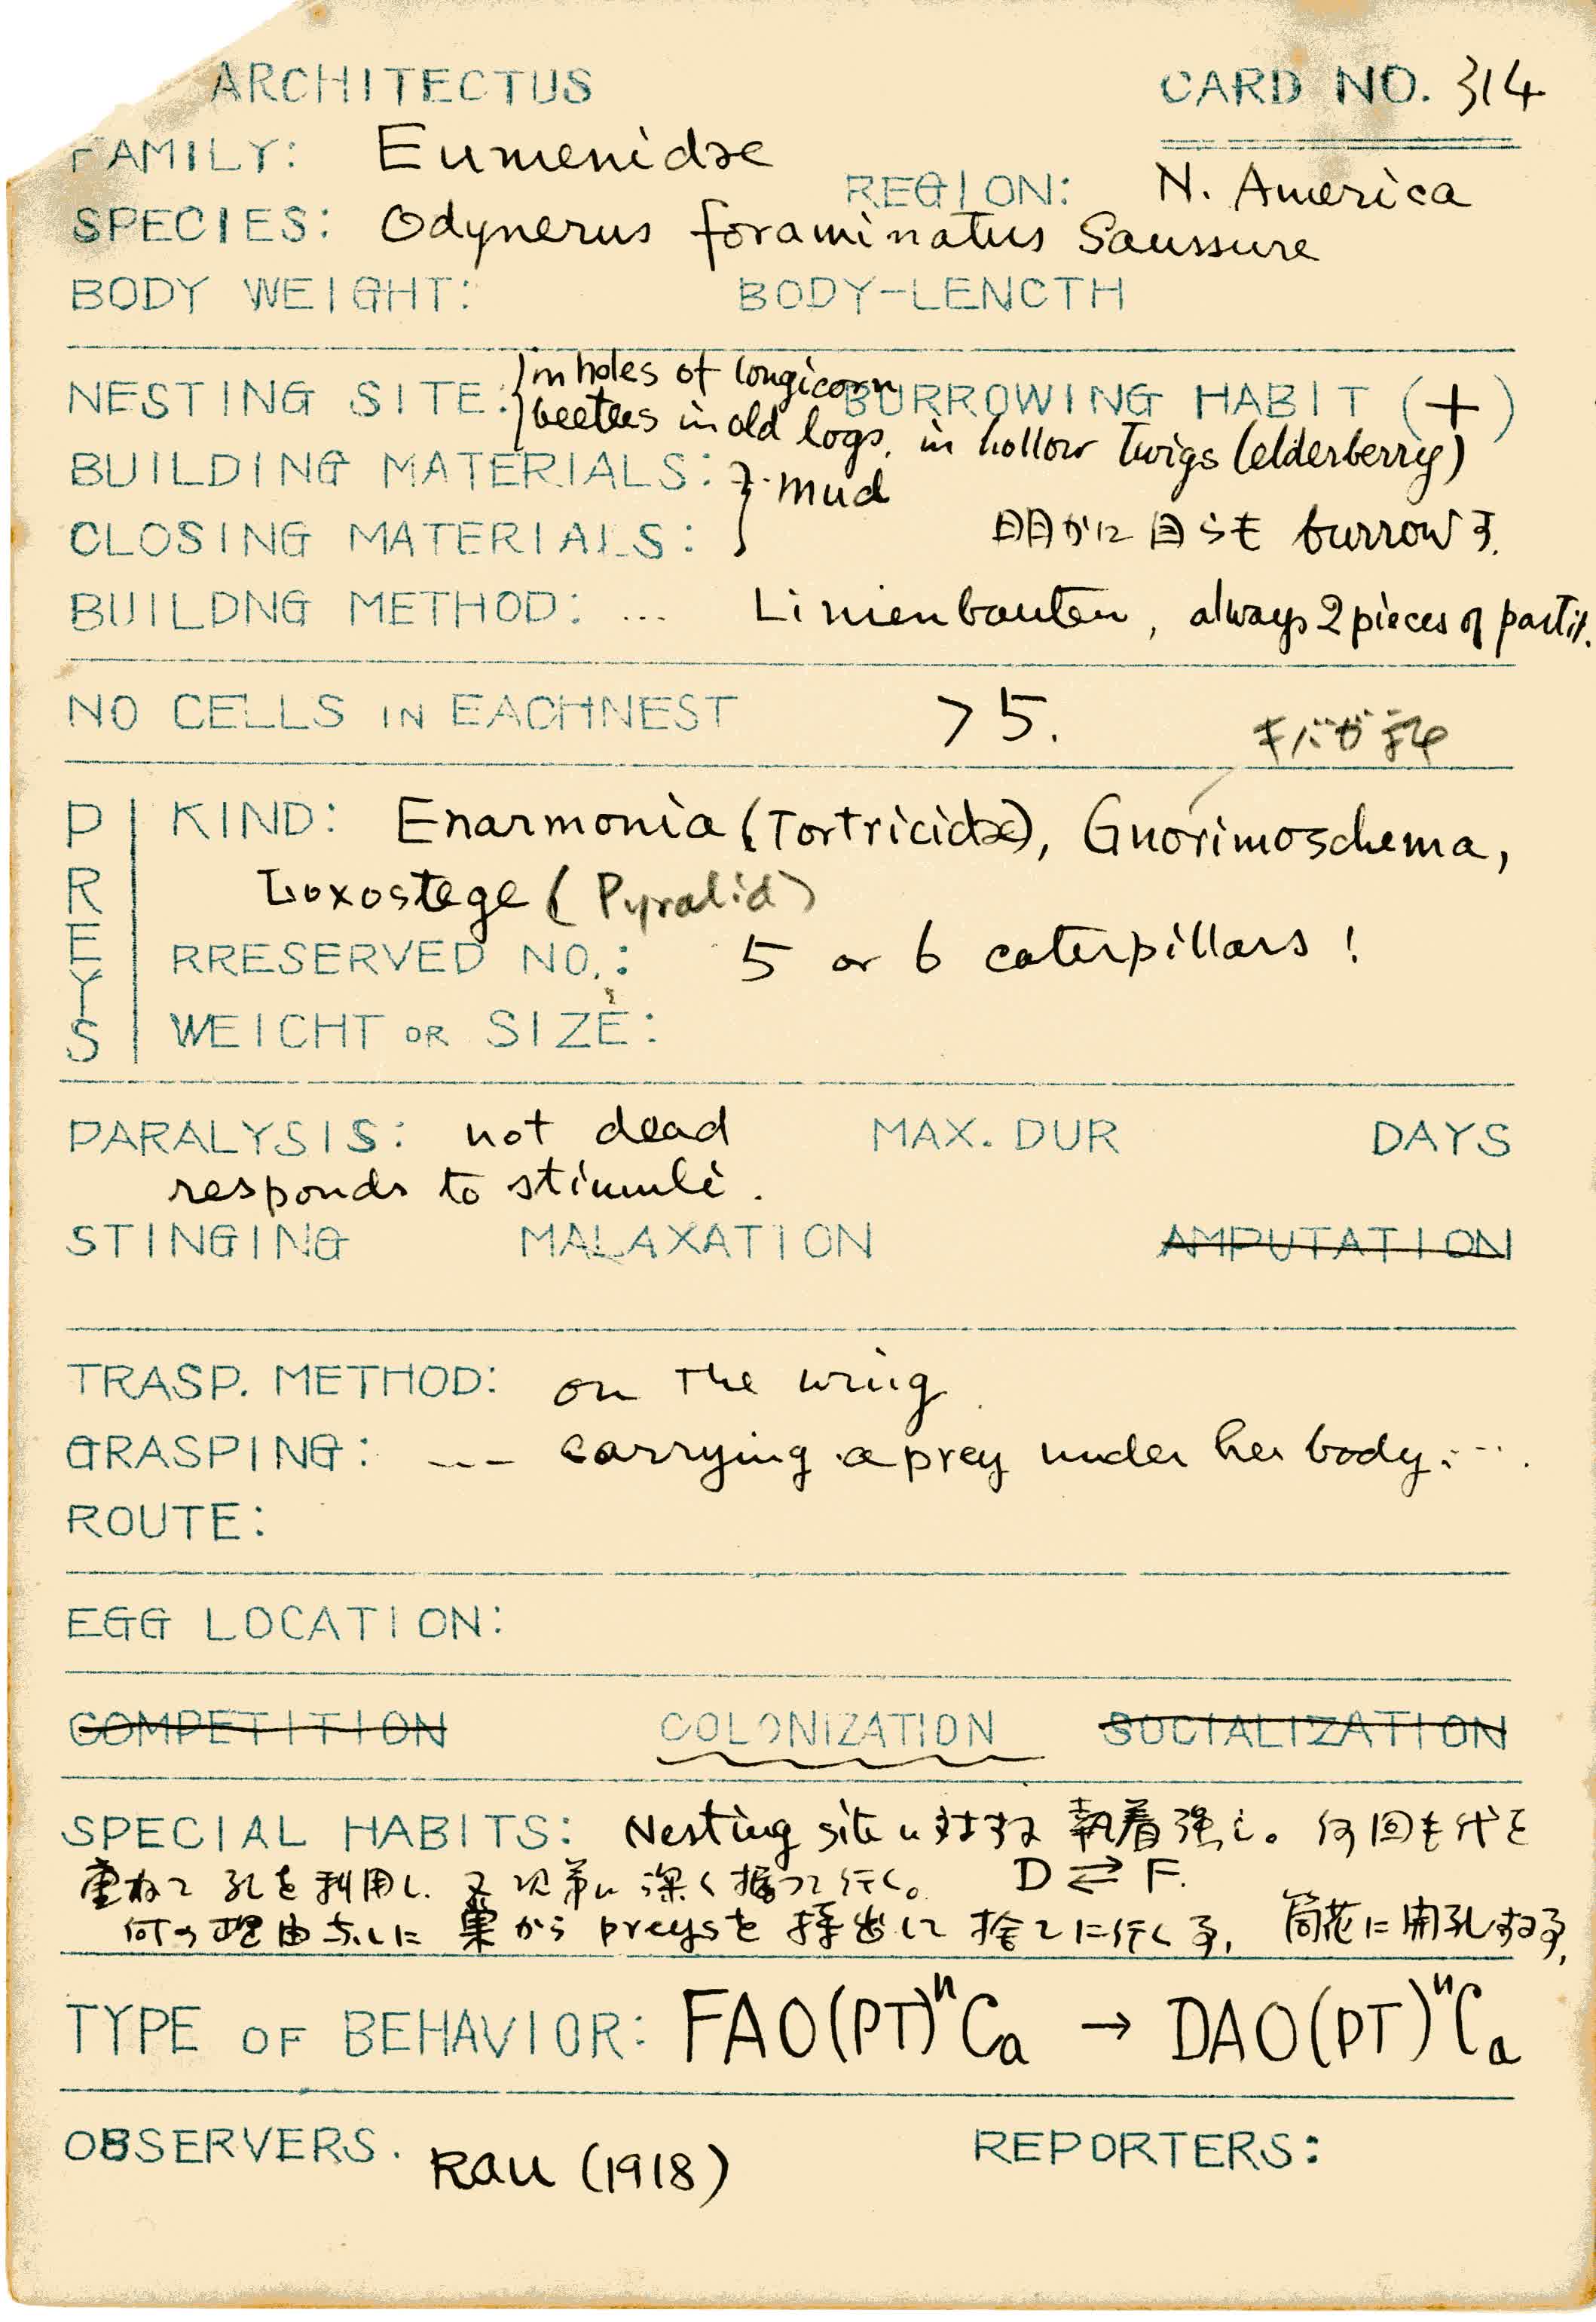 ARCHITECTUS
CARD NO. 314
FAMILY: Eumenidae
REGION: N. America
SPECIES: Odynerus foraminatus Saussure
BODY WEIGHT: BODY-LENCTH
NESTING SITE: in holes of longicorn
beetles in old logs, in hollow twigs (elderberry)
BURROWING HABIT (+)
BUILDING MATERIALS: mud
CLOSING MATERIALS:
明かに自らも burrowす.
BUILDNG METHOD: ... Linienbauten, always 2 pieces of partit.
NO CELLS IN EACHNEST >5.
キバガ科
PREYS
KIND: Enarmonia (Tortricidae), Gnorimoschema,
Loxostege (Pyralid)
RRESERVED NO.: 5 or 6 caterpillars!
WEICHT OR SIZE:
PARALYSIS: not dead MAX. DUR DAYS
responds to stimuli.
STINGING MALAXATION AMPUTATION
TRASP. METHOD: on the wing
GRASPING: --- carrying a prey under her body...
ROUTE:
EGG LOCATION:
COMPETITION COLONIZATION SOCIALIZATION
SPECIAL HABITS: Nesting siteに対する執着強し。何回も代を
重ねて孔を利用し、又次第に深く掘って行く。 D⇄F.
何の理由なしに巣からpreysを持出して捨てに行く事, 筒花に開孔する事,
TYPE OF BEHAVIOR: FAO(PT)ⁿCa → DAO(PT)ⁿCa
OBSERVERS. Rau (1918) REPORTERS: